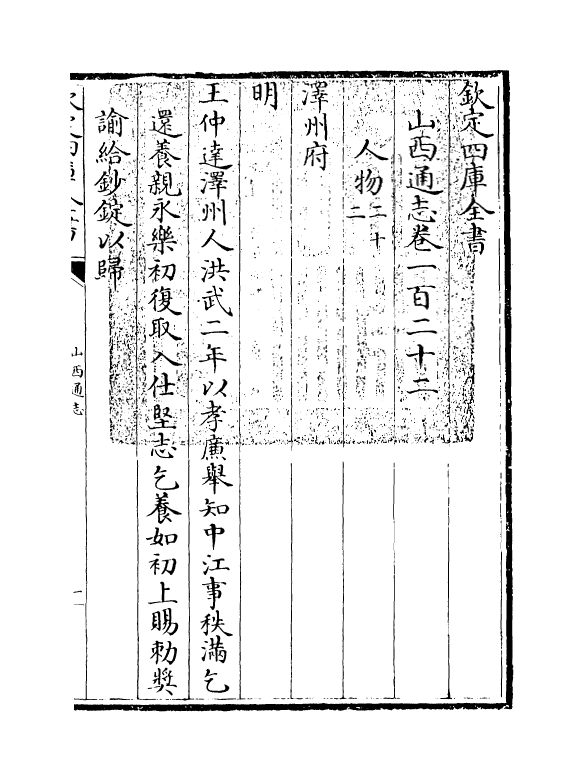 欽定四庫全書
山西通志卷一百二十二
人物二十二
澤州府
明
王仲達澤州人洪武二年以孝廉舉知中江事秩滿乞
還養親永樂初復取入仕堅志乞養如初上賜勅獎
諭給鈔錠以歸
欽定四庫全書
山西通志
一